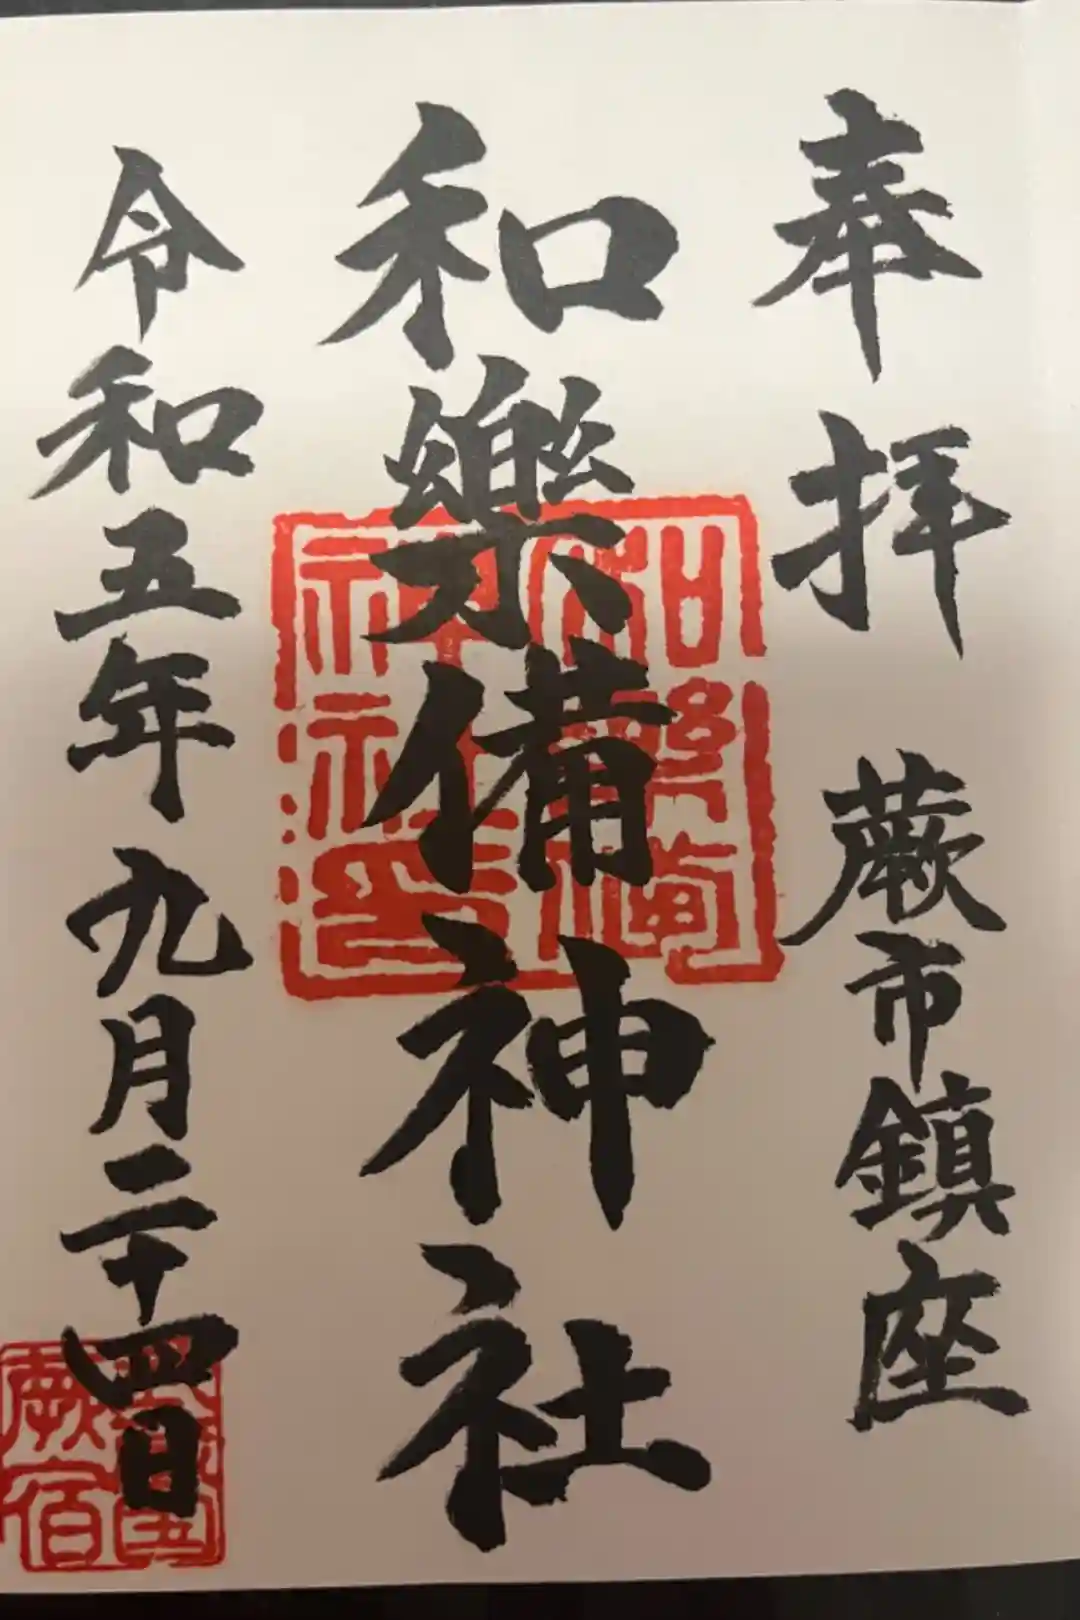 奉拝 蕨市鎮座
和樂備神社
和樂備神社印
令和五年九月二十四日
蕨宿